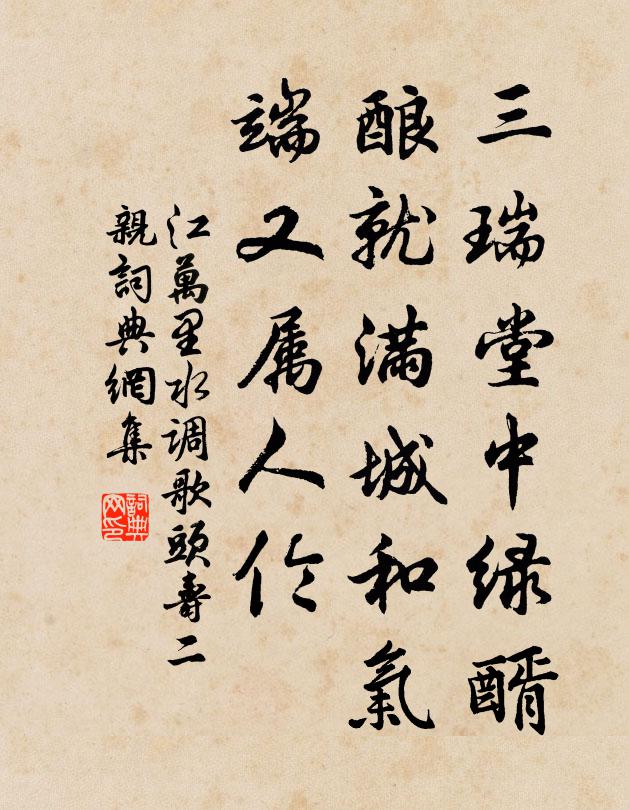 三瑞堂中绿醑
酿就满城和氣
端又属人伦
江萬里水调歌頭壽二
親詞典網集
詞典
网印